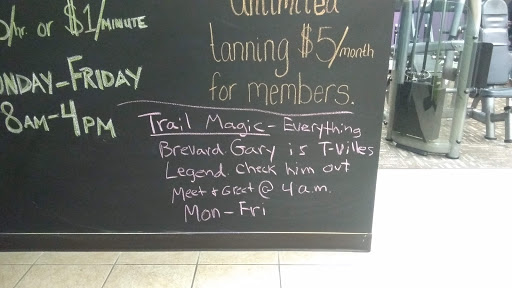 /hr. or $1/MINUTE
MONDAY-FRIDAY
8AM-4PM
unlimited
tanning $5/month
for members.
Trail Magic - Everything
Brevard. Gary is T-Villes
Legend. Check him out
Meet & Greet @ 4 a.m.
Mon-Fri